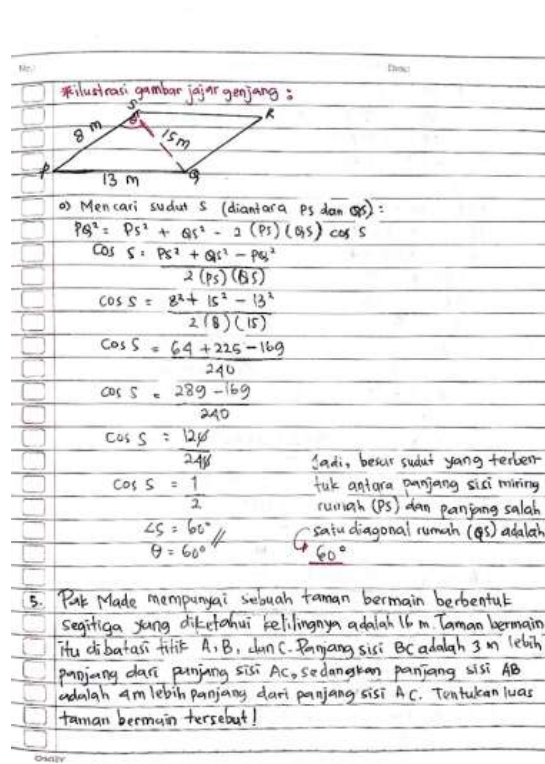 No.:
Date:
*ilustrasi gambar jajar genjang :
S
R
8 m
15 m
P
Q
13 m
o) Mencari sudut S (diantara PS dan QS) :
PQ² = PS² + QS² - 2 (PS) (QS) cos S
Cos S = PS² + QS² - PQ²
2 (PS) (QS)
cos S = 8² + 15² - 13²
2 (8) (15)
Cos S = 64 + 225 - 169
240
cos S = 289 - 169
240
Cos S = 120
240
Cos S = 1
2
∠S = 60°
θ = 60° //
Jadi, besar sudut yang terben-
tuk antara panjang sisi miring
rumah (PS) dan panjang salah
satu diagonal rumah (QS) adalah
60°
5. Pak Made mempunyai sebuah taman bermain berbentuk
segitiga yang diketahui kelilingnya adalah 16 m. Taman bermain
itu dibatasi titik A, B, dan C. Panjang sisi BC adalah 3 m lebih
panjang dari panjang sisi AC, sedangkan panjang sisi AB
adalah 4m lebih panjang dari panjang sisi AC. Tentukan luas
taman bermain tersebut!